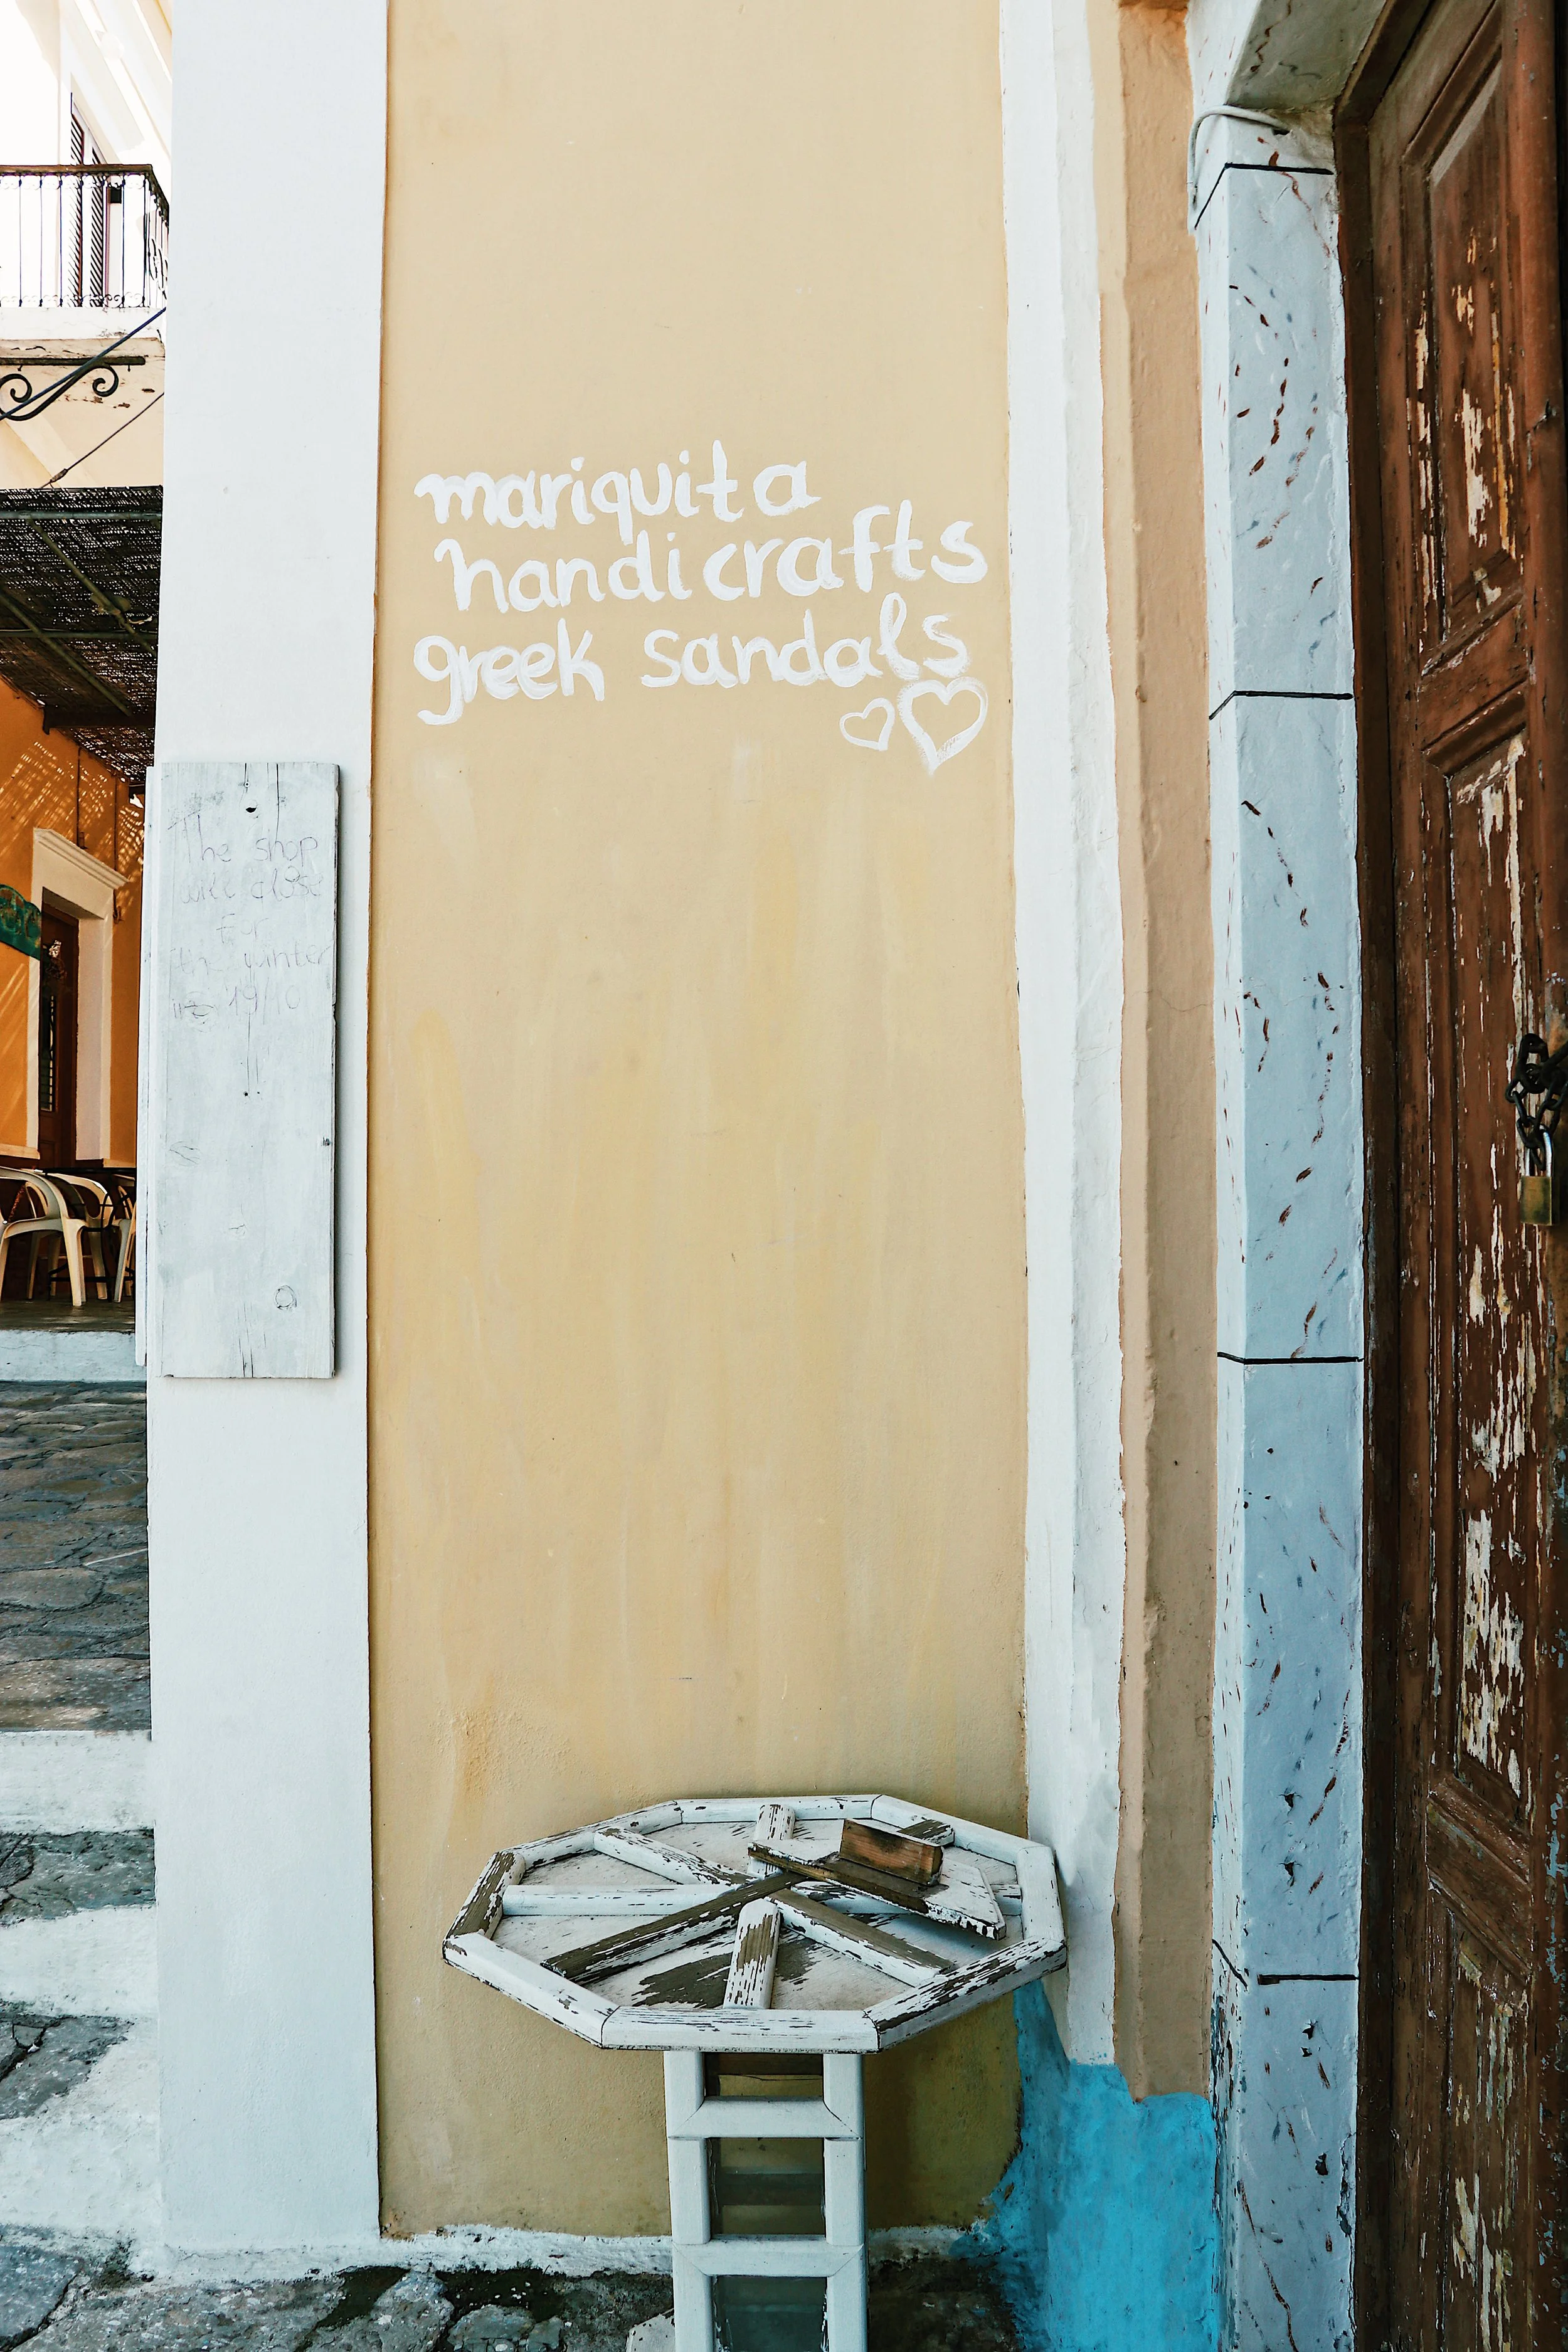 mariquita
handicrafts
greek sandals
The shop
will close
For
the winter
19/10